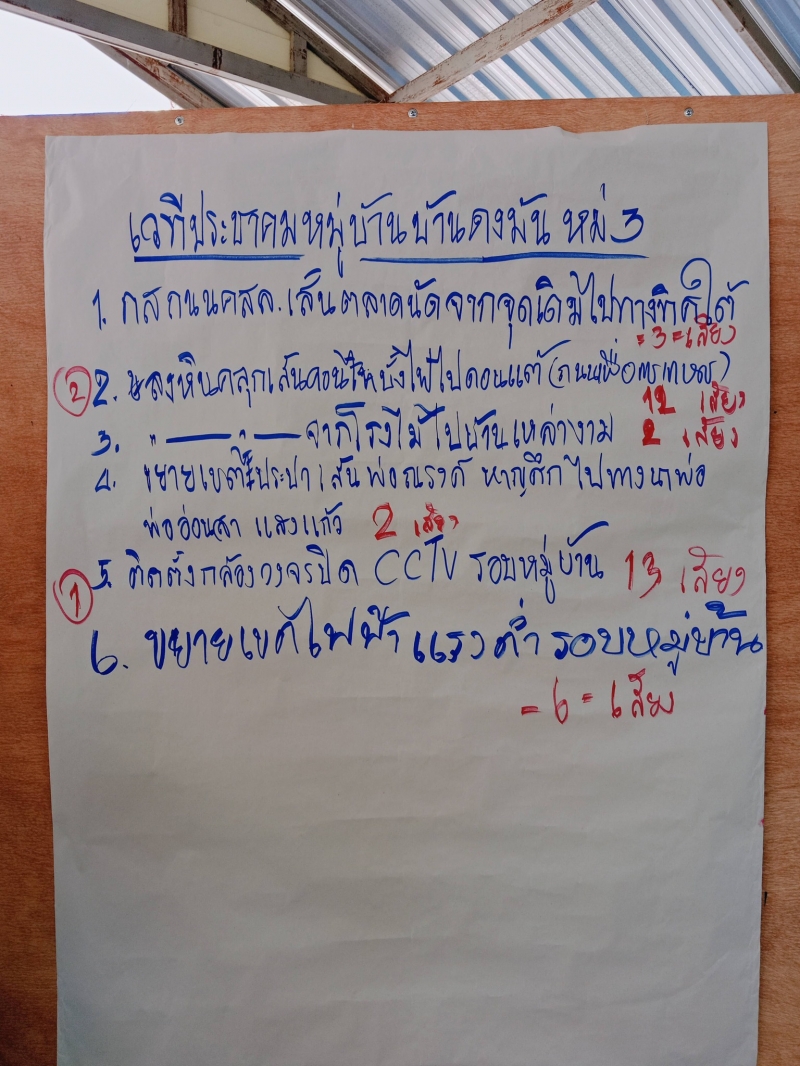 เวทีประชาคมหมู่บ้านบ้านดงมัน หมู่ 3
1. กส ถนนคสล. เส้นตลาดนัดจากจุดเดิมไปทางทิศใต้
= 3 = เสียง
② 2. ลงหินคลุกเส้นดอนบั้งไฟไปดอนแต้ (ถนนเพื่อการเกษตร)
12 เสียง
3. " — " — จากโรงไม้ไปบ้านเหล่างาม 2 เสียง
4. ขยายเขตประปาเส้นพ่อณรงค์ หาญศึก ไปทางนาพ่อ
พ่ออ่อนสา แสงแก้ว 2 เสียง
① 5. ติดตั้งกล้องวงจรปิด CCTV รอบหมู่บ้าน 13 เสียง
6. ขยายเขตไฟฟ้าแรงต่ำรอบหมู่บ้าน
= 6 = เสียง